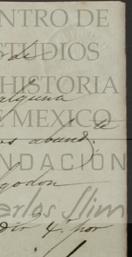 CENTRO DE
de
ESTUDIOS
HISTORIA
alguna
DE MEXICO
te
s abund.
FUNDACIÓN
godon
Carlos Slim
4. por